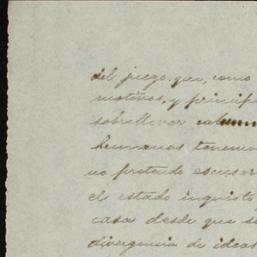 del juego. que, como
motivos, y princip
sobrellevar
humanos tenemo
no pretendo escusar
el estado inquieto
casa desde que se
divergencia de ideas